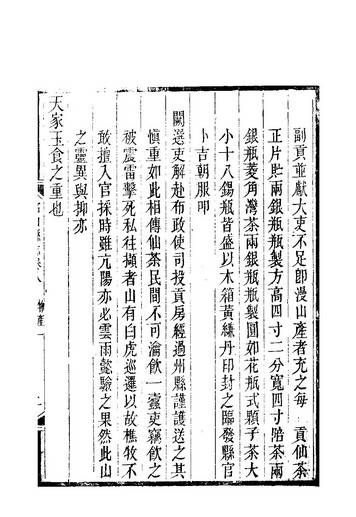 副貢並獻大吏不足卽漫山產者充之每 貢仙茶
正片貯兩銀瓶瓶製方高四寸二分寬四寸陪茶兩
銀瓶菱角灣茶兩銀瓶瓶製圓如花瓶式顆子茶大
小十八錫瓶皆盛以木箱黃縑丹印封之臨發縣官
卜吉朝服叩
闕選吏解赴布政使司投貢房經過州縣謹護送之其
慎重如此相傳仙茶民間不可瀹飲一蠹吏竊飲之
被震雷擊死私往擷者山有白虎巡邏以故樵牧不
敢擅入官採時雖亢陽亦必雲雨懿驗之果然此山
之靈異與抑亦
天家玉食之重也
物產